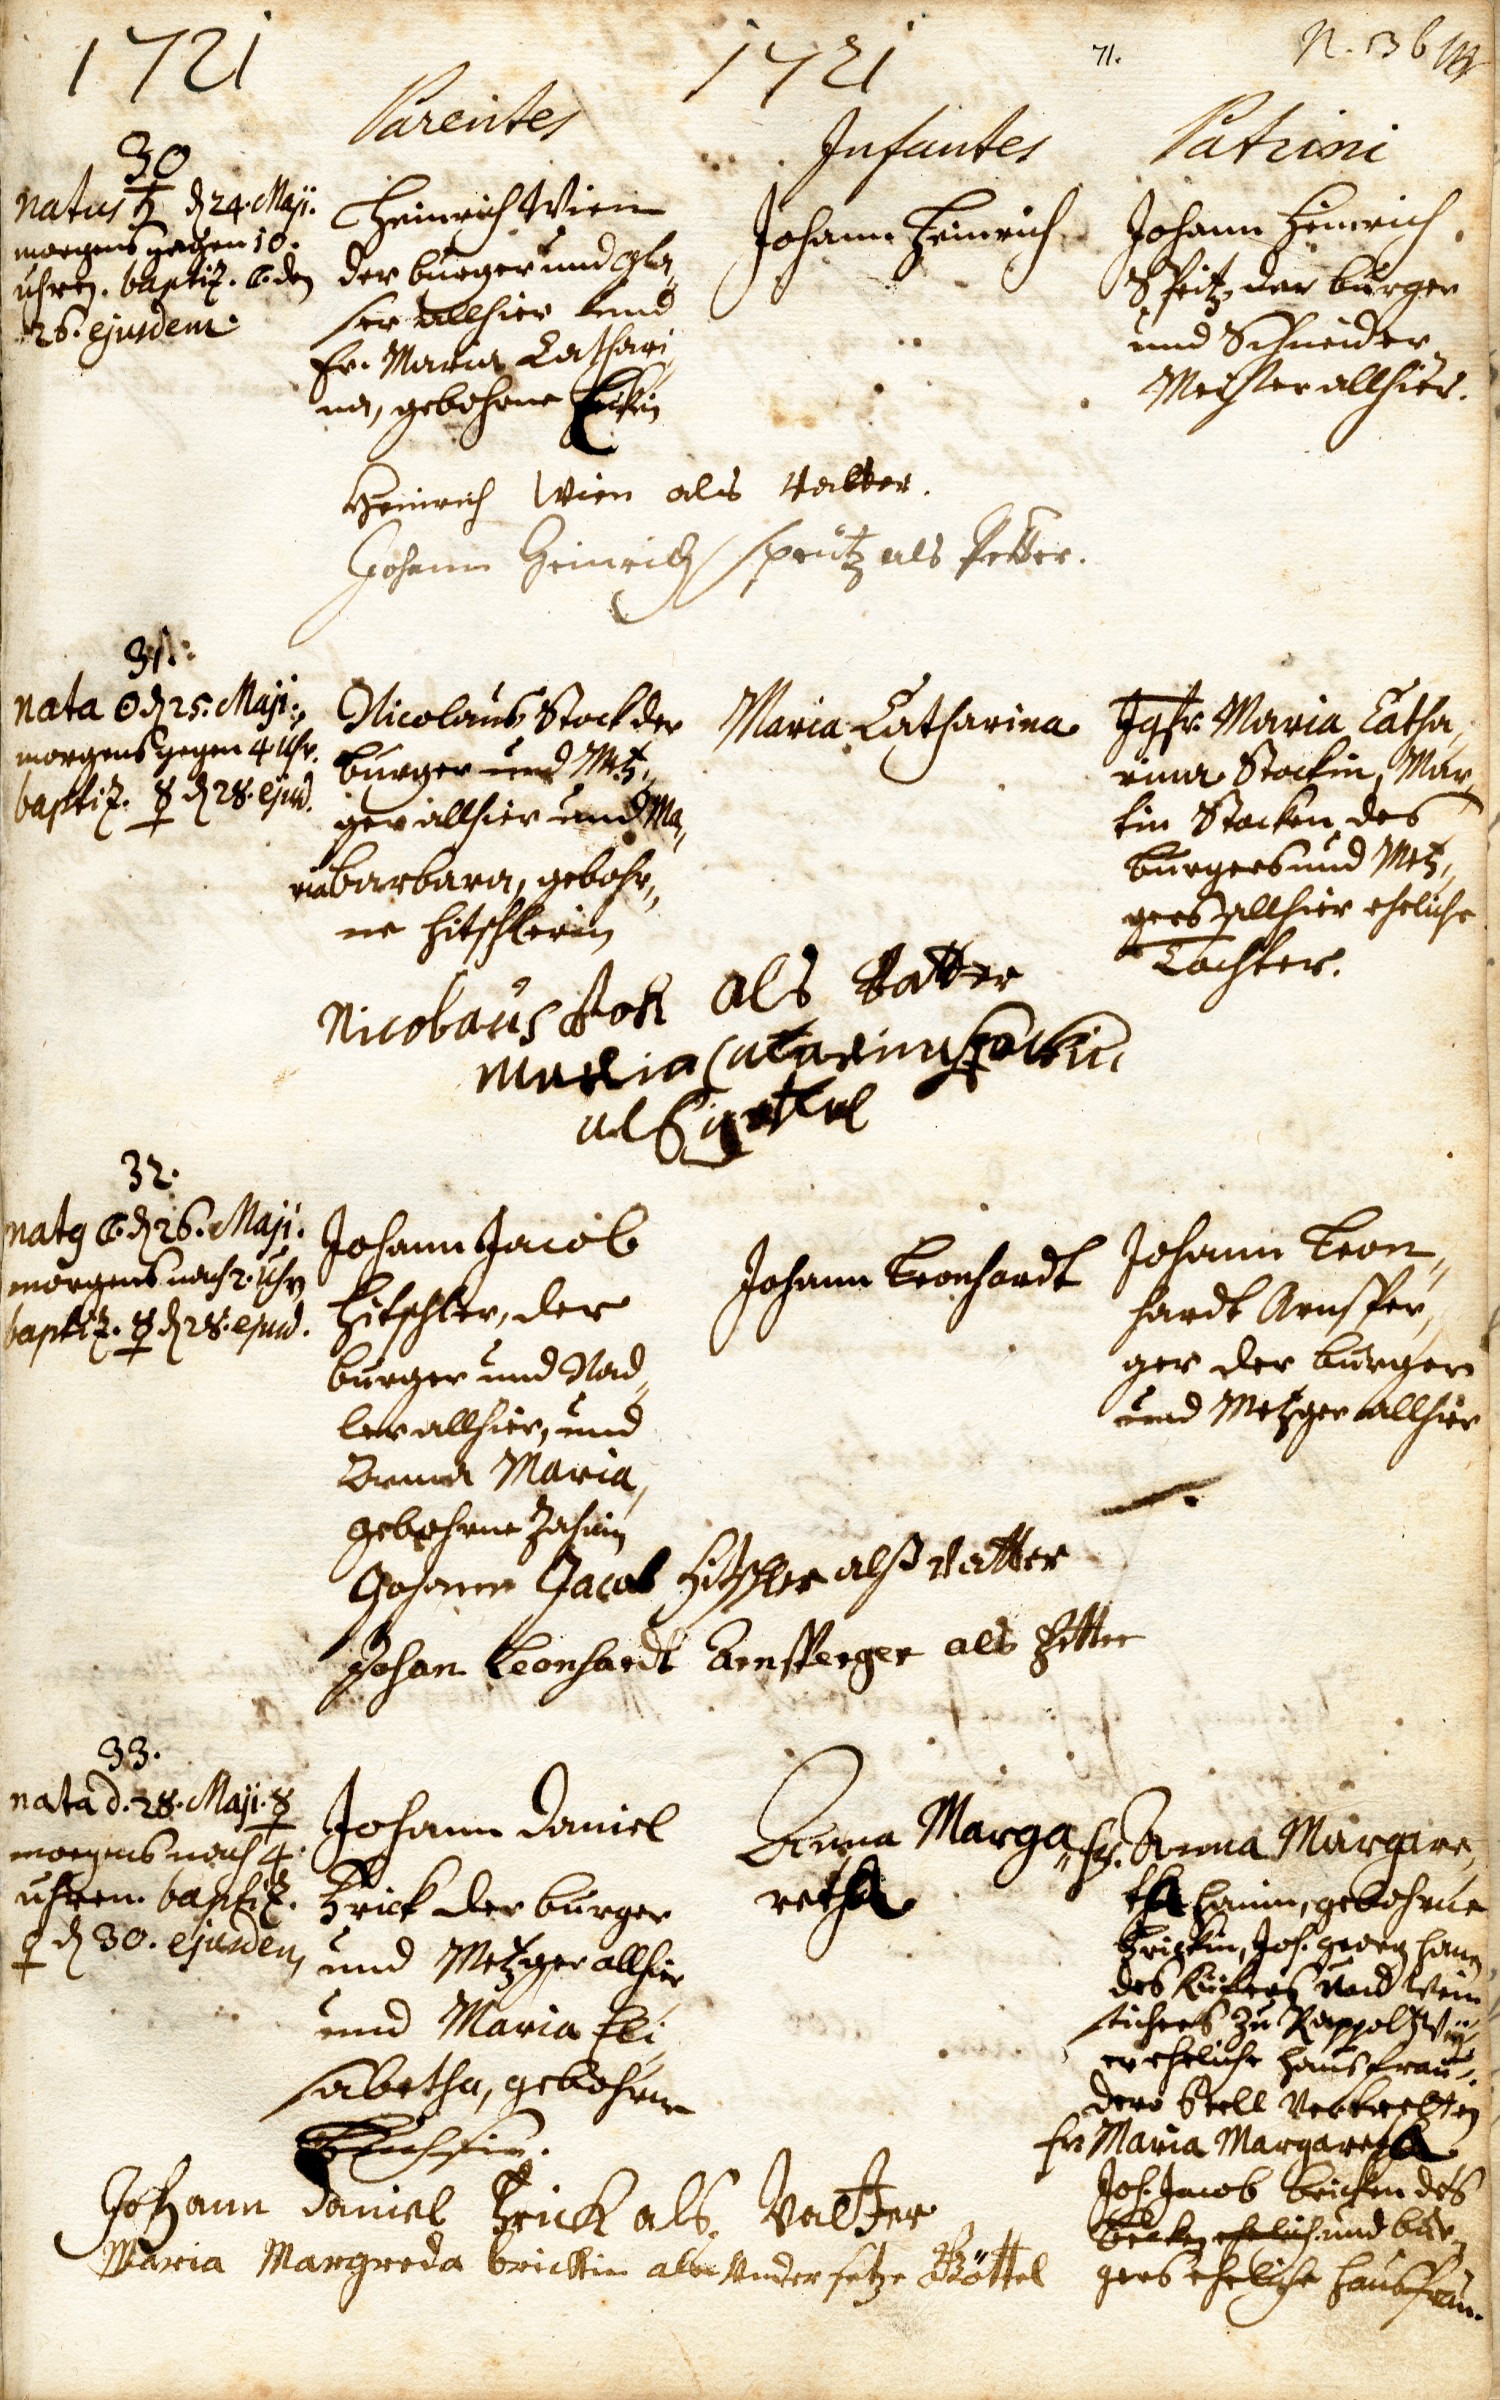 1721
1721
71.
N. 136
Parentes
Infantes
Patrini
30
natus ♄ d 24. Maji.
morgens gegen 10.
uhren. baptiz. ☾ den
26. ejusdem.
Heinrich Wien
der burger und gla„
ser allhier und
Fr. Maria Cathari„
na, gebohrne
Johann Heinrich
Johann Heinrich
Spritz, der burger
und Schneider
Meister allhier.
Heinrich Wien als vatter.
Johann Heinrich sprützals Petter.
31.
nata ☉ d 25. Maji.
morgens gegen 4 Uhr.
baptiz. ☿ d 28. ejusd.
Nicolaus Stock der
burger und Metz„
ger allhier und Ma„
ria Barbara, gebohr„
ne Hitschlerin
Maria Catharina
Jgfr. Maria Catha„
rina Stockin, Mar„
tin Stocken des
burgers und Metz„
gers allhier eheliche
Tochter.
Nicolaus stok als Vatter
Maria Catarina stockin
als gettel
32.
natg ☾ d 26. Maji.
morgens nach 2. Uhr
baptiz. ☿ d 28. ejusd.
Johann Jacob
Hitschler, der
burger und Nad„
ler allhier, und
Anna Maria,
gebohrne Zahnin
Johann Leonhardt
Johann Leon„
hardt Arnsper„
ger der burger
und Metzger allhier
Johann Jacob Hitschler alß vatter
Johan Leonhardt Arnsperger als Petter
33.
nata d. 28. Maji. ☿
morgens nach 4.
uhren. baptiz.
♀ d 30. ejusdem
Johann Daniel
Brick der burger
und Metzger allhier
und Maria Eli„
sabetha, gebohrne
Anna Marga„
retha
Fr. Anna Margare„
tha Hannin, gebohrne
Brickin, Joh. Georg Hann
des Küfers und Wein
stichers zu Rappoltzwey„
er eheliche Hausfrau„.
dero Stell vertretten
Fr. Maria Margaretha
Joh. Jacob Bricken des
becken ehelich und bur„
gers eheliche Hausfrau.
Johann Daniel Brick als Vatter
Maria Margreda brickin als Undersetze Göttel